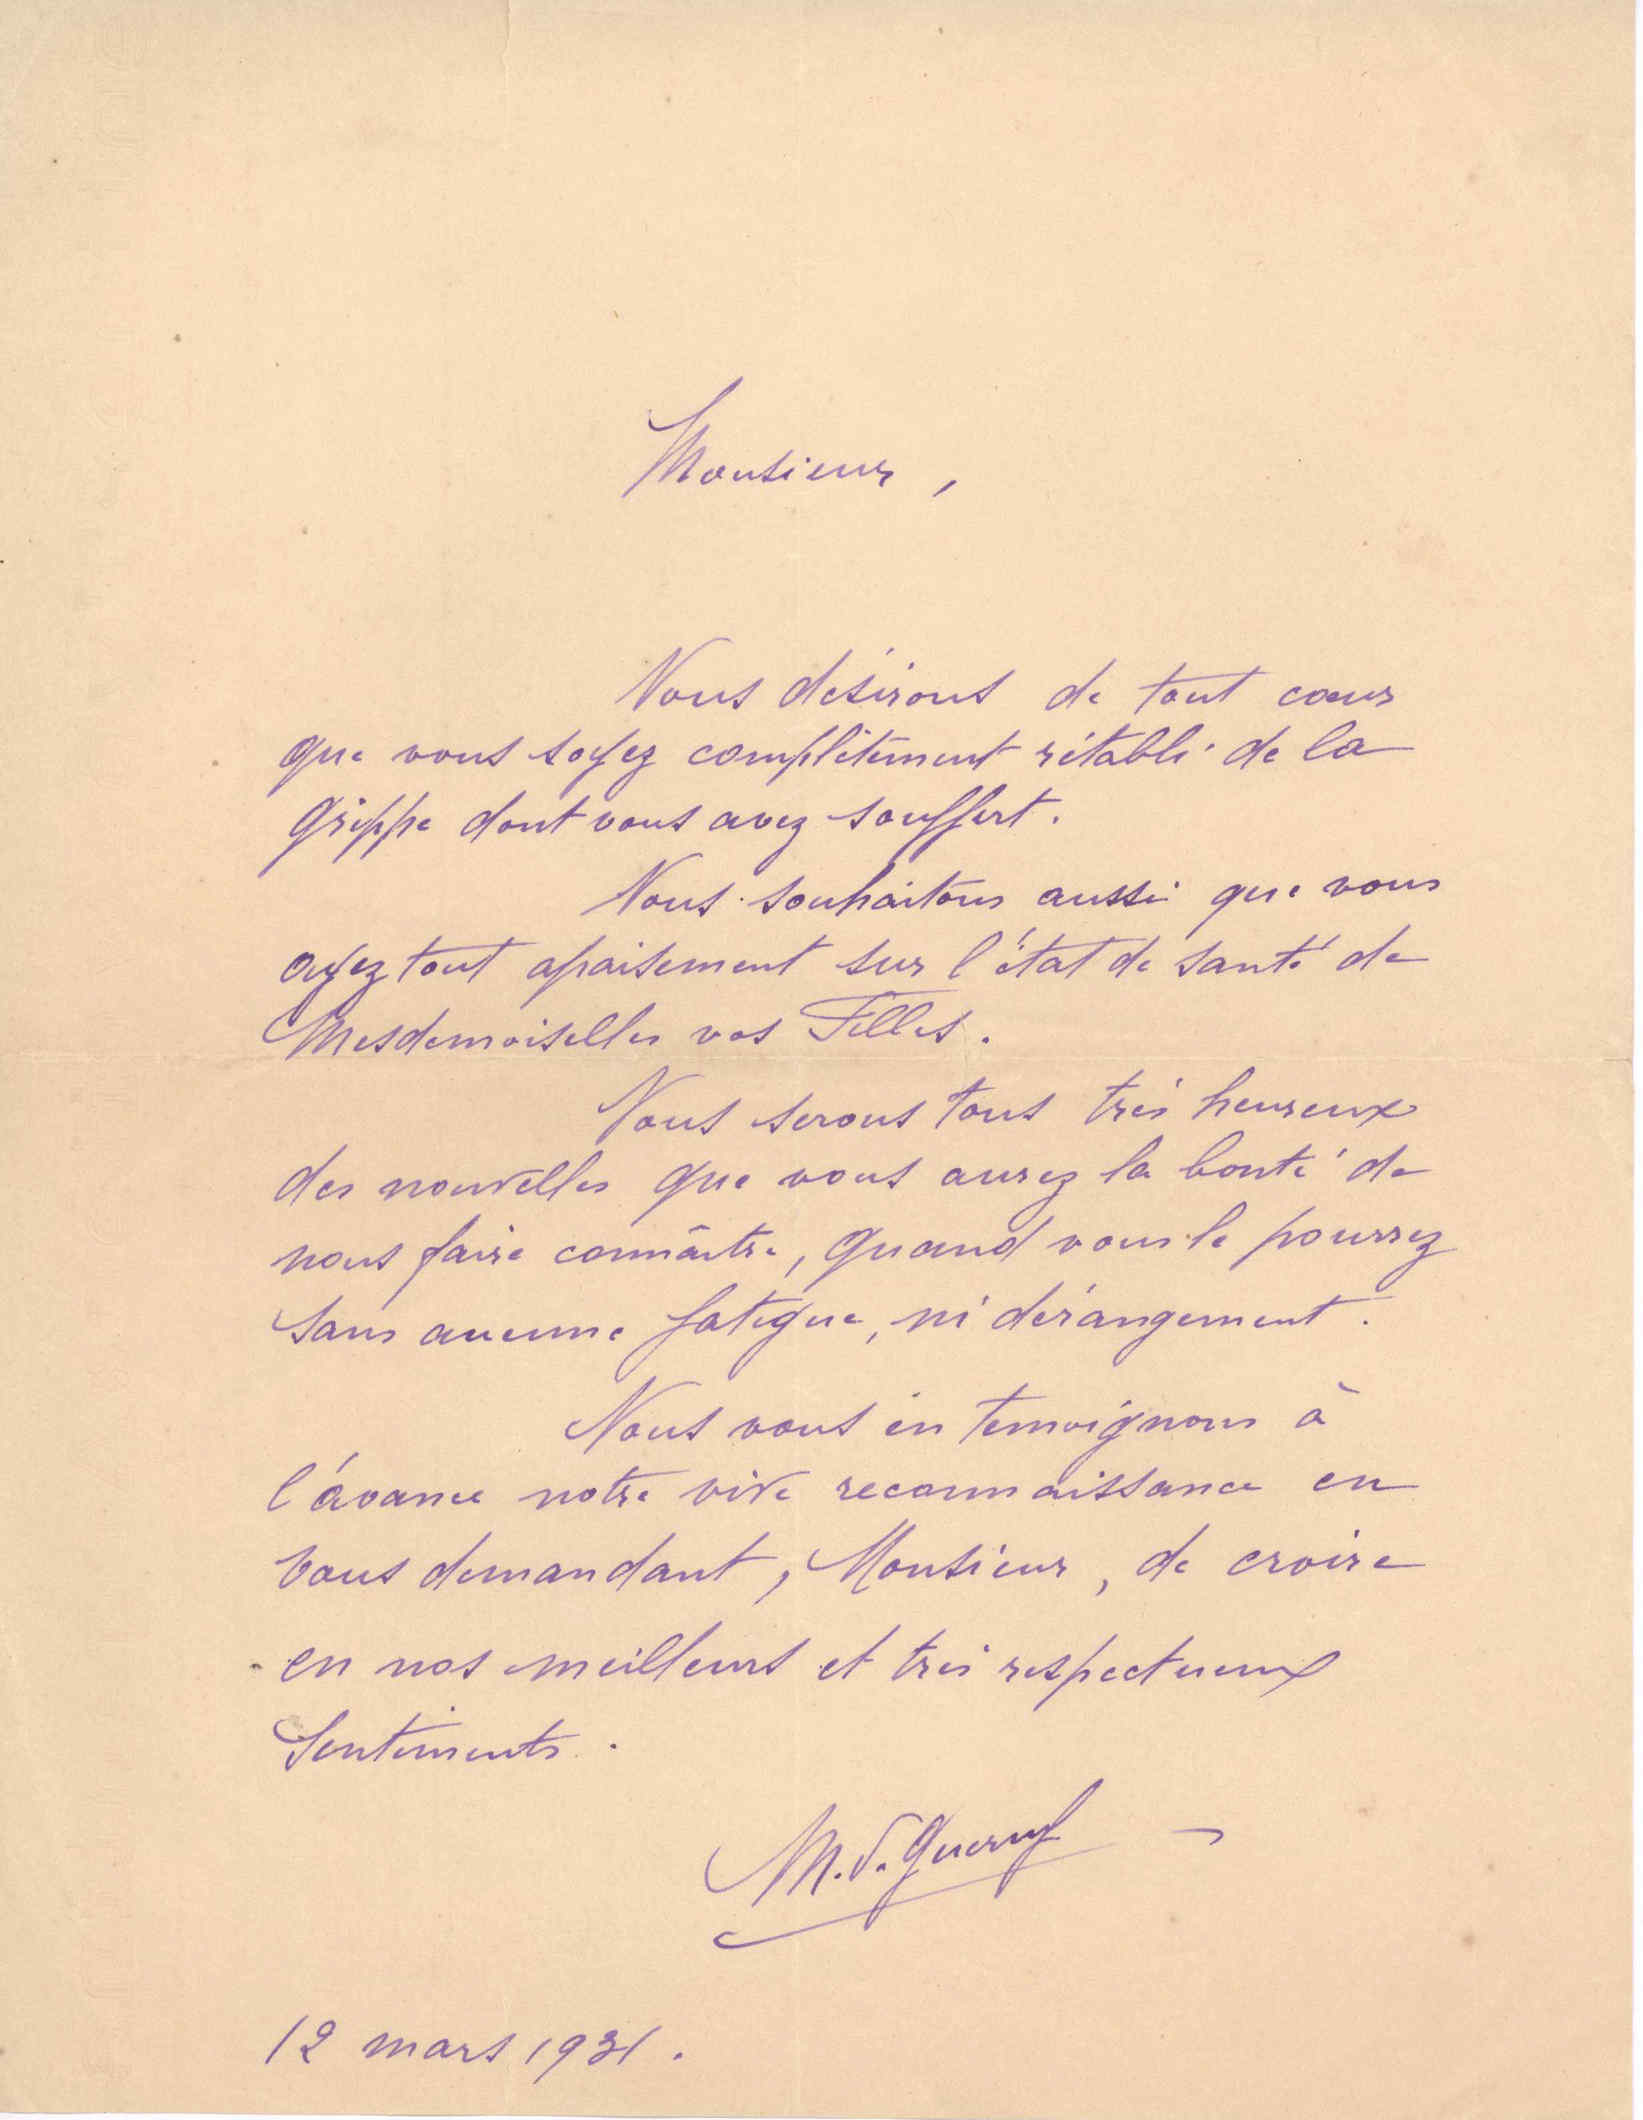 Monsieur,
Nous désirons de tout cœur
que vous soyez complètement rétabli de la
grippe dont vous avez souffert.
Nous souhaitons aussi que vous
ayez tout apaisement sur l'état de santé de
Mesdemoiselles vos Filles.
Nous serons tous très heureux
des nouvelles que vous aurez la bonté de
nous faire connaître, quand vous le pourrez
sans aucune fatigue, ni dérangement.
Nous vous en témoignons à
l'avance notre vive reconnaissance en
vous demandant, Monsieur, de croire
en nos meilleurs et très respectueux
Sentiments.
12 mars 1931.